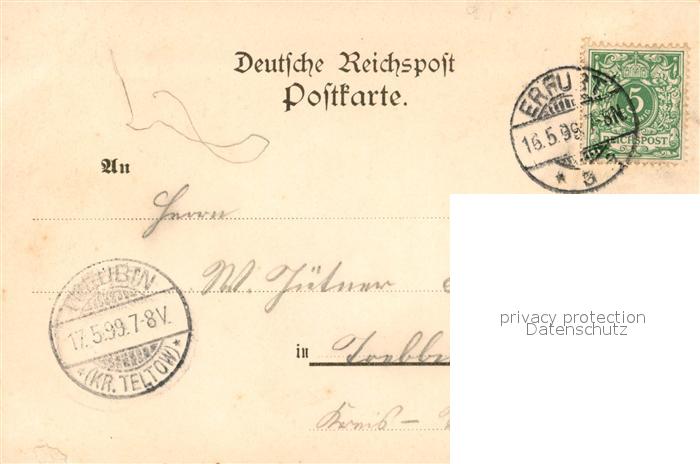 Deutsche Reichspost
Postkarte.
ERFURT
16.5.99. 8N
* 3
5
REICHSPOST
An
Herrn
W. Jütner
in Trebb
Kreis-
TREBBIN
17.5.99.7-8V.
*(KR. TELTOW)*
privacy protection
Datenschutz